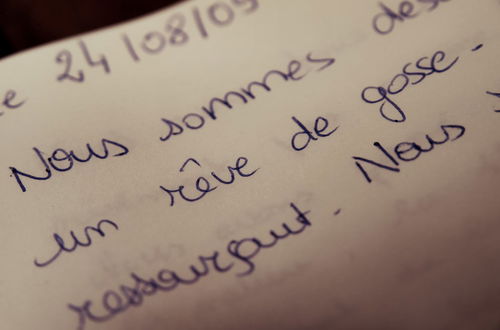 e 24/08/09
Nous sommes des
un rêve de gosse.
ressurgant. Nous